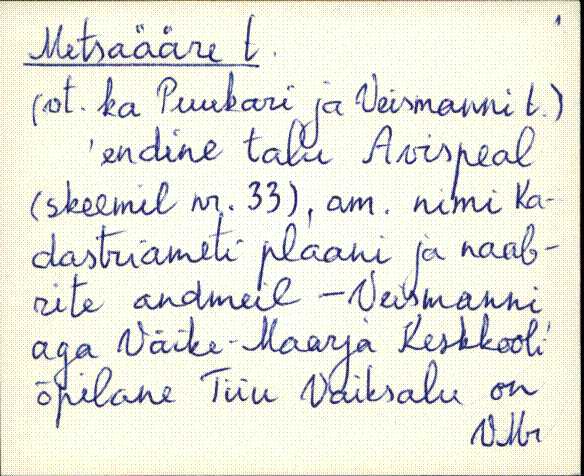 Metsaääre t.
(vt. ka Puukari ja Veismanni t.)
'endine talu Avispeal
(skeemil nr. 33), am. nimi Ka-
dastriameti plaani ja naab-
rite andmeil – Veismanni
aga Väike-Maarja Keskkooli
õpilane Tiiu Vaiksalu on
VMr